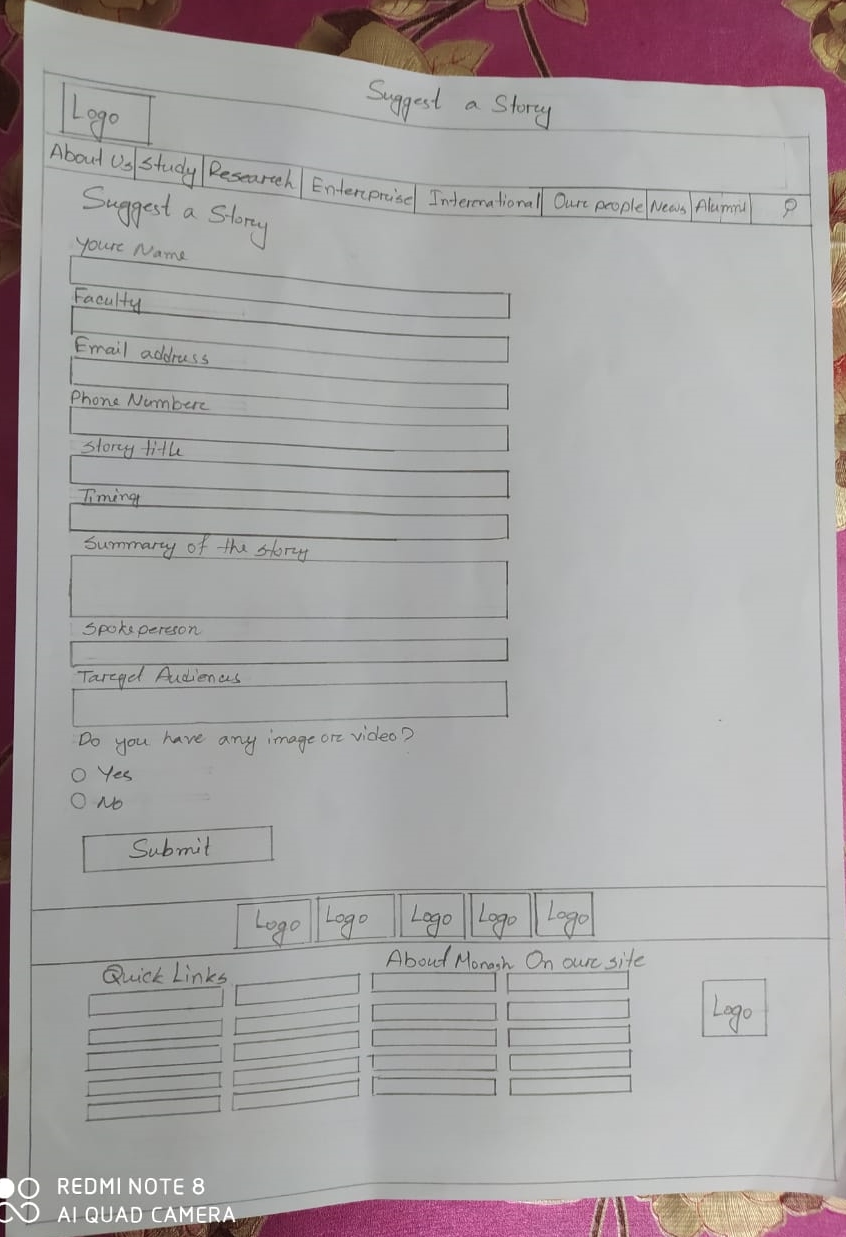 Suggest a Story
Logo
About Us Study Research Enterprise International Our people News Alumni
Suggest a Story
Your Name
Faculty
Email address
Phone Number
Story title
Timing
Summary of the story
Spokeperson
Target Audiences
Do you have any image or video?
Yes
No
Submit
Logo Logo Logo Logo Logo
Quick Links About Monash On our site
Logo
REDMI NOTE 8
AI QUAD CAMERA